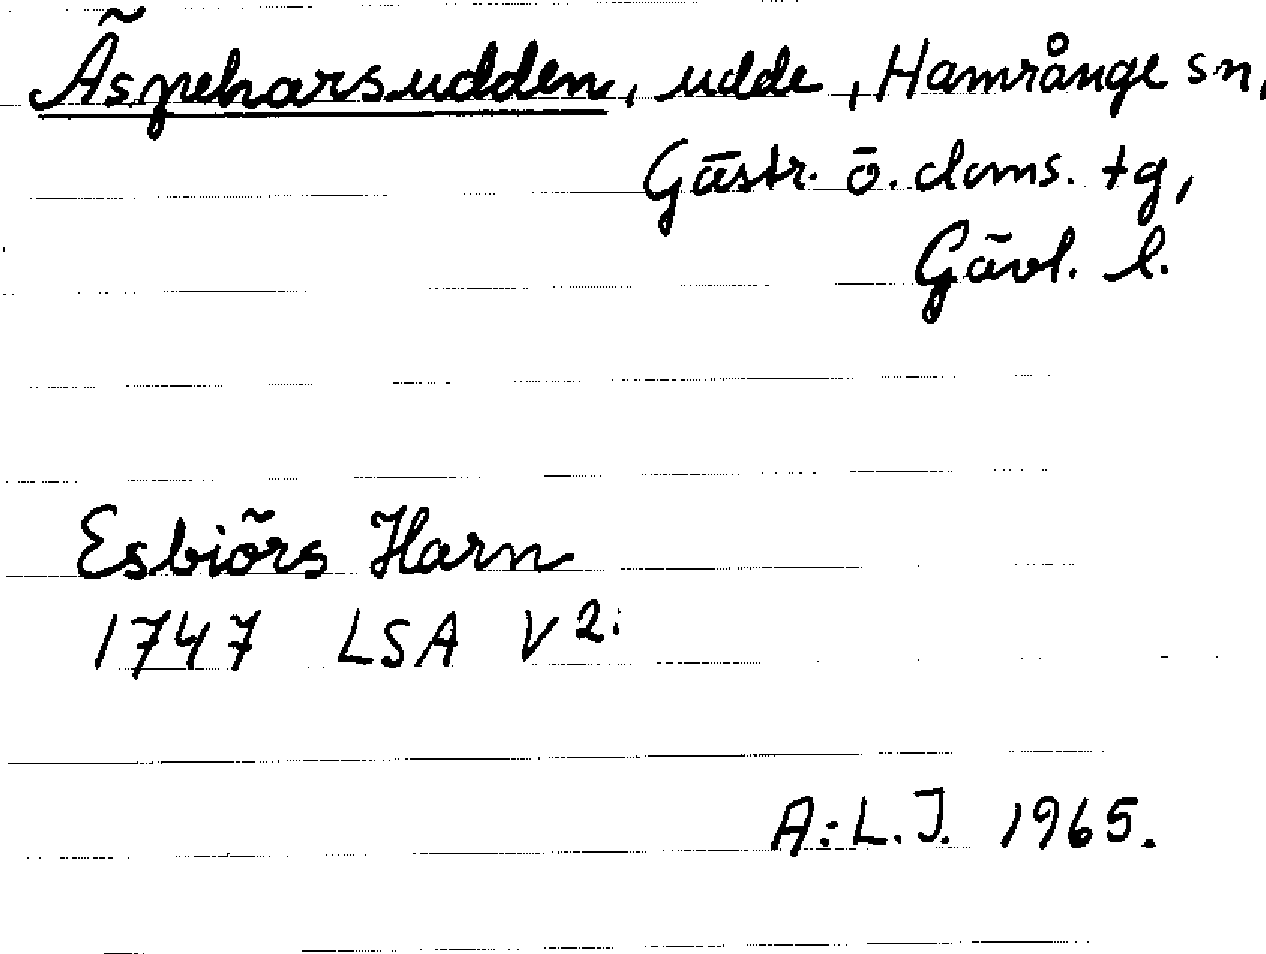 Äspeharsudden, udde, Hamrånge sn,
Gästr. ö. doms. tg,
Gävl. l.
Esbiörs Harn
1747 LSA V 2:
A:L.J. 1965.